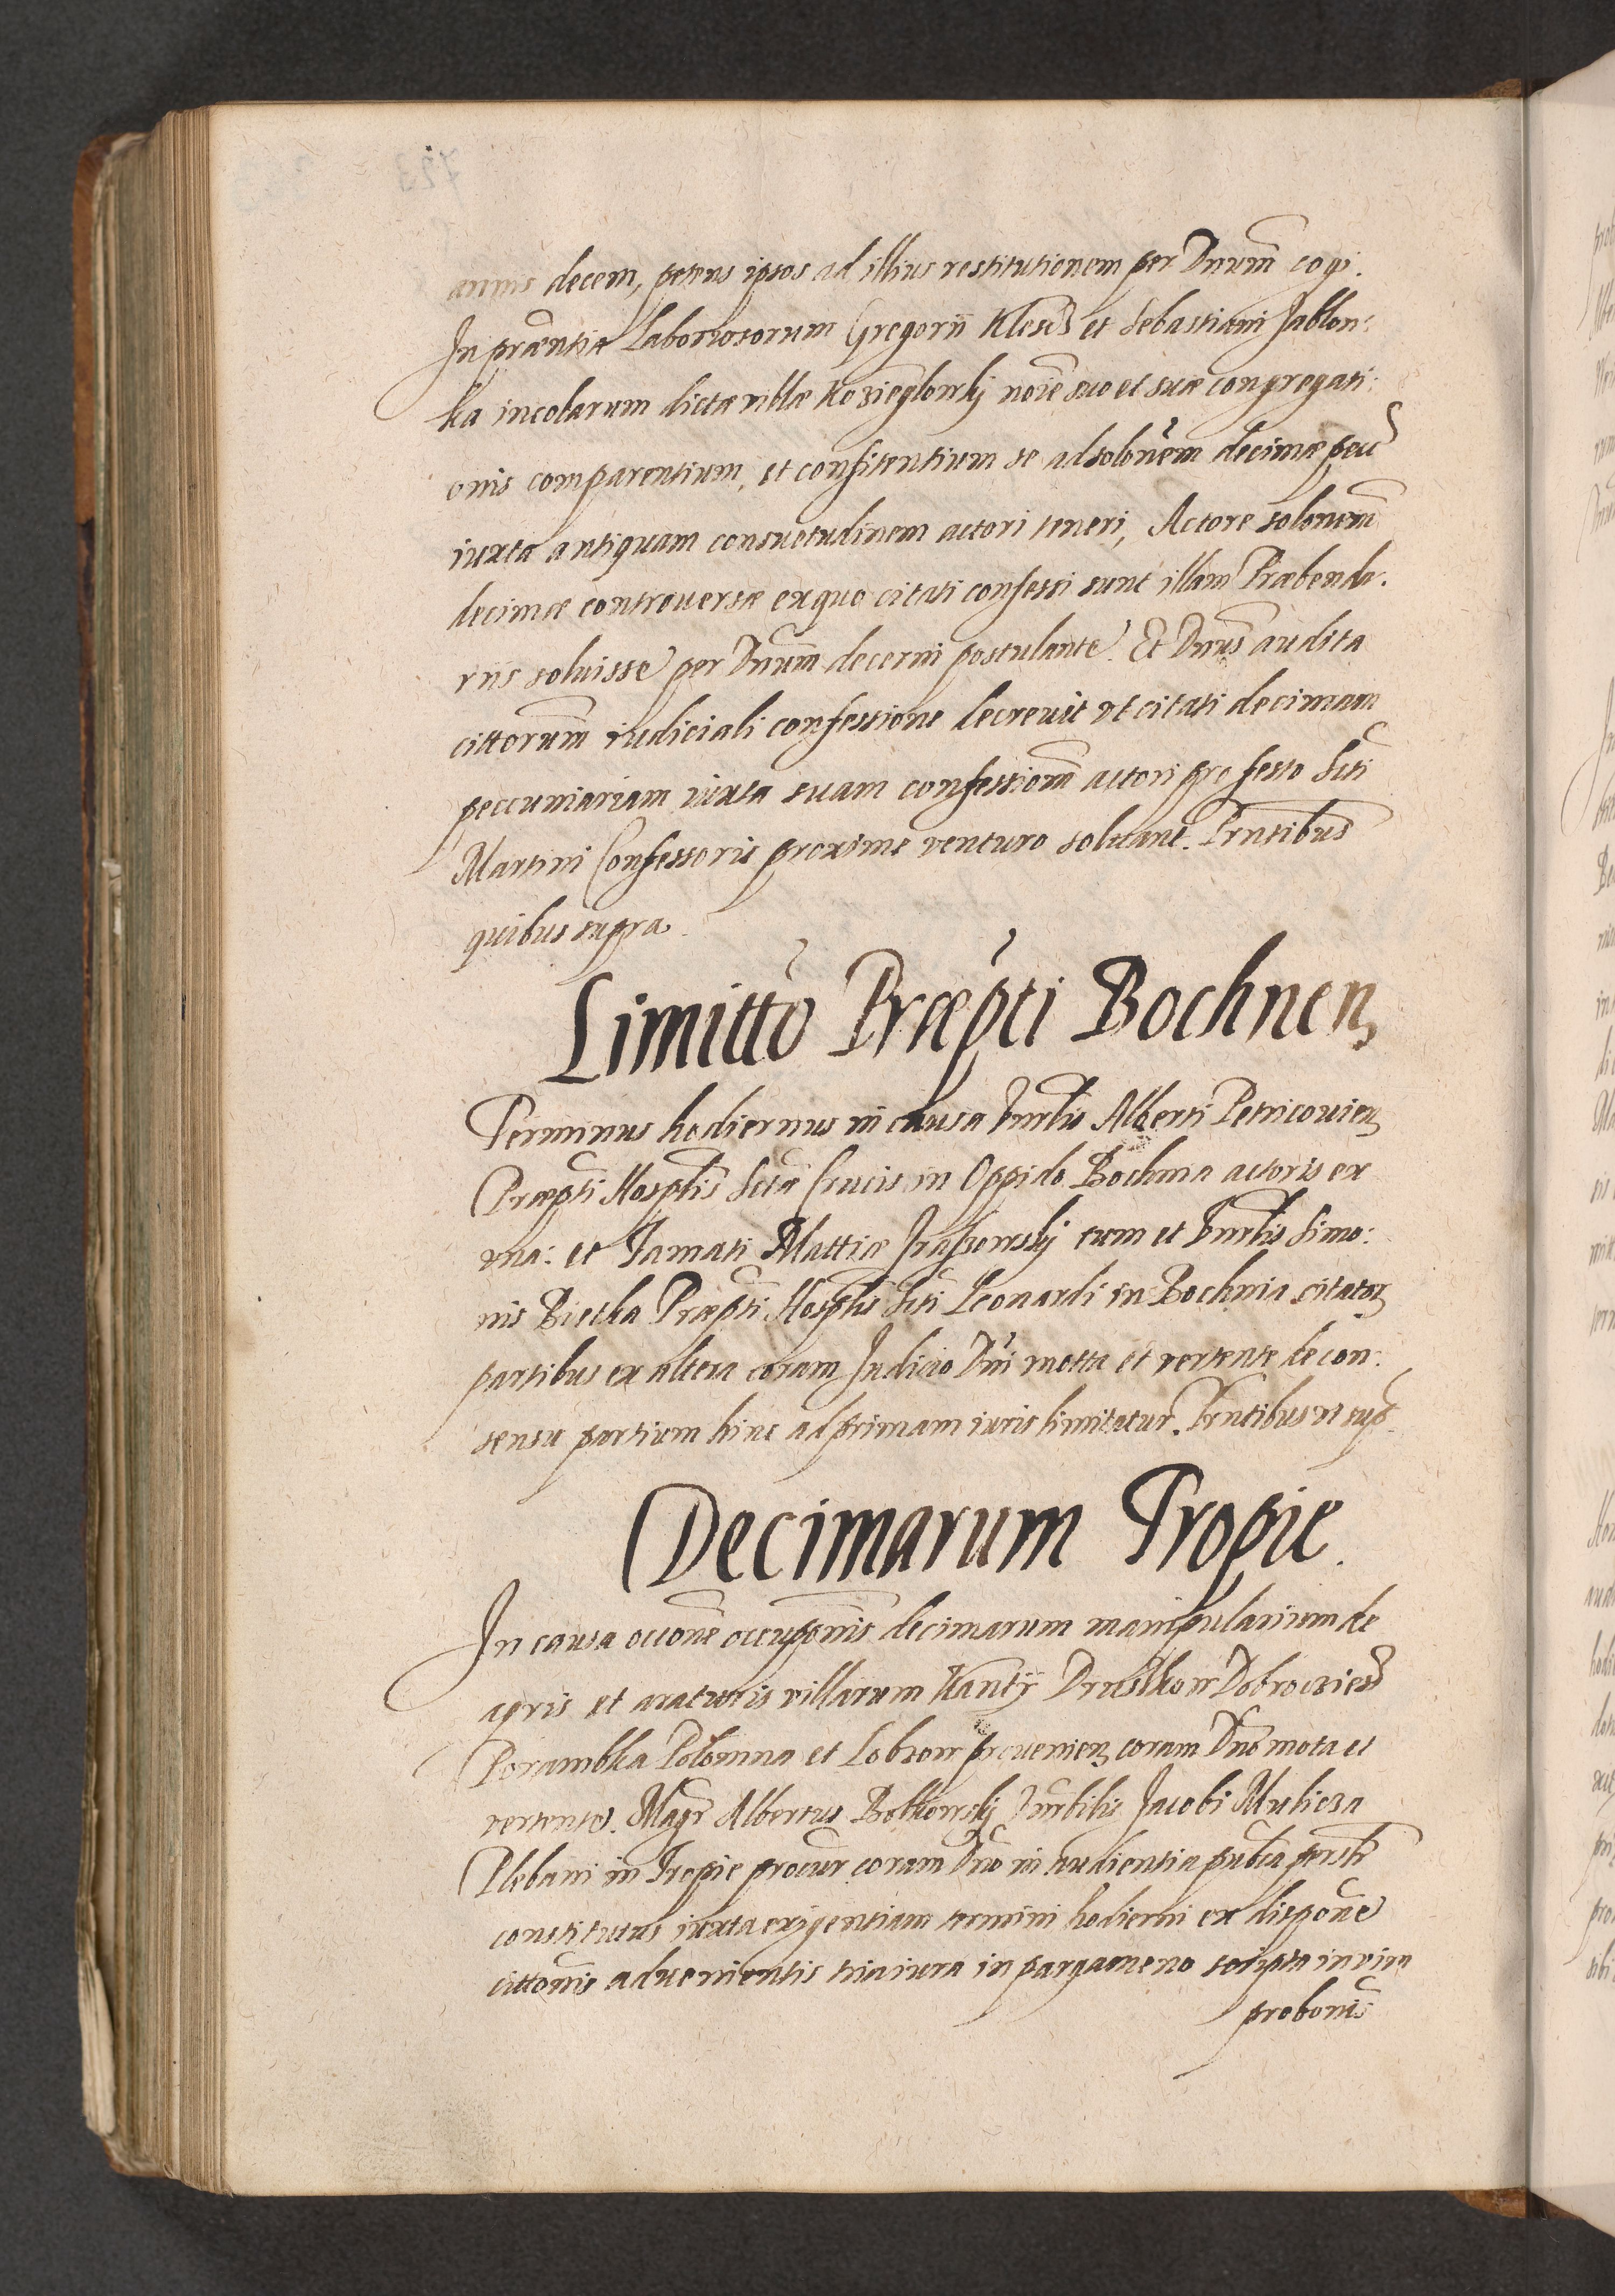 annis decem, petens ipsos ad illius restitutionem per Dnum cogi.
In praentia Laboriosorum Gregorii Klesz et Sebastiani Jablon:
ka incolarum dictae villae Kozieglowky noie suo et suae congregati:
onis comparentium, et confitentium se ad solonem decimae pecu
iuxta antiquam consuetudinem actori teneri, Actore solonem
decimae controuersae ex quo citati confessi sunt illam Praebenda:
riis soluisse per Dnum decerni postulante. Et Dnus audita
cittorum iudiciali confessione decreuit vt citati decimam
peccuniariam iuxta suam confessionem actori pro festo Scti
Martini Confessoris proxime venturo soluant. Prntibus
quibus supra.
Limitto Praepti Bochnen
Terminus hodiernus in causa Vnrlis Alberti Petricouien
Praepti Hosplis Sctae Crucis in Oppido Bochnia actoris ex
vna: et Famati Mattiae tum et Vnrlis Simo:
nis Bietka Praepti Hosplis Scti Leonardi in Bochnia citator
partibus ex altera coram Judicio Dni motta et vertente de con:
sensu partium hinc ad primam iuris limitatur. Prntibus vt sup
Decimarum Tropie.
In causa occone occuponis decimarum manipularium de
agris et araturis villarum Kanty Druszkow Dobrocziess
Porambka Polomna et Lobzow prouenien coram Dno mota et
vertente. Magr Albertus Bolkowsky Vnrbilis Jacobi Mulicza
Plebani in Tropie procur coram Dno in audientia publca psnlr
constitutus iuxta exigentiam termini hodierni ex dispone
cittonis aduenientis tria iura in pargameno scripta in vim
probonis